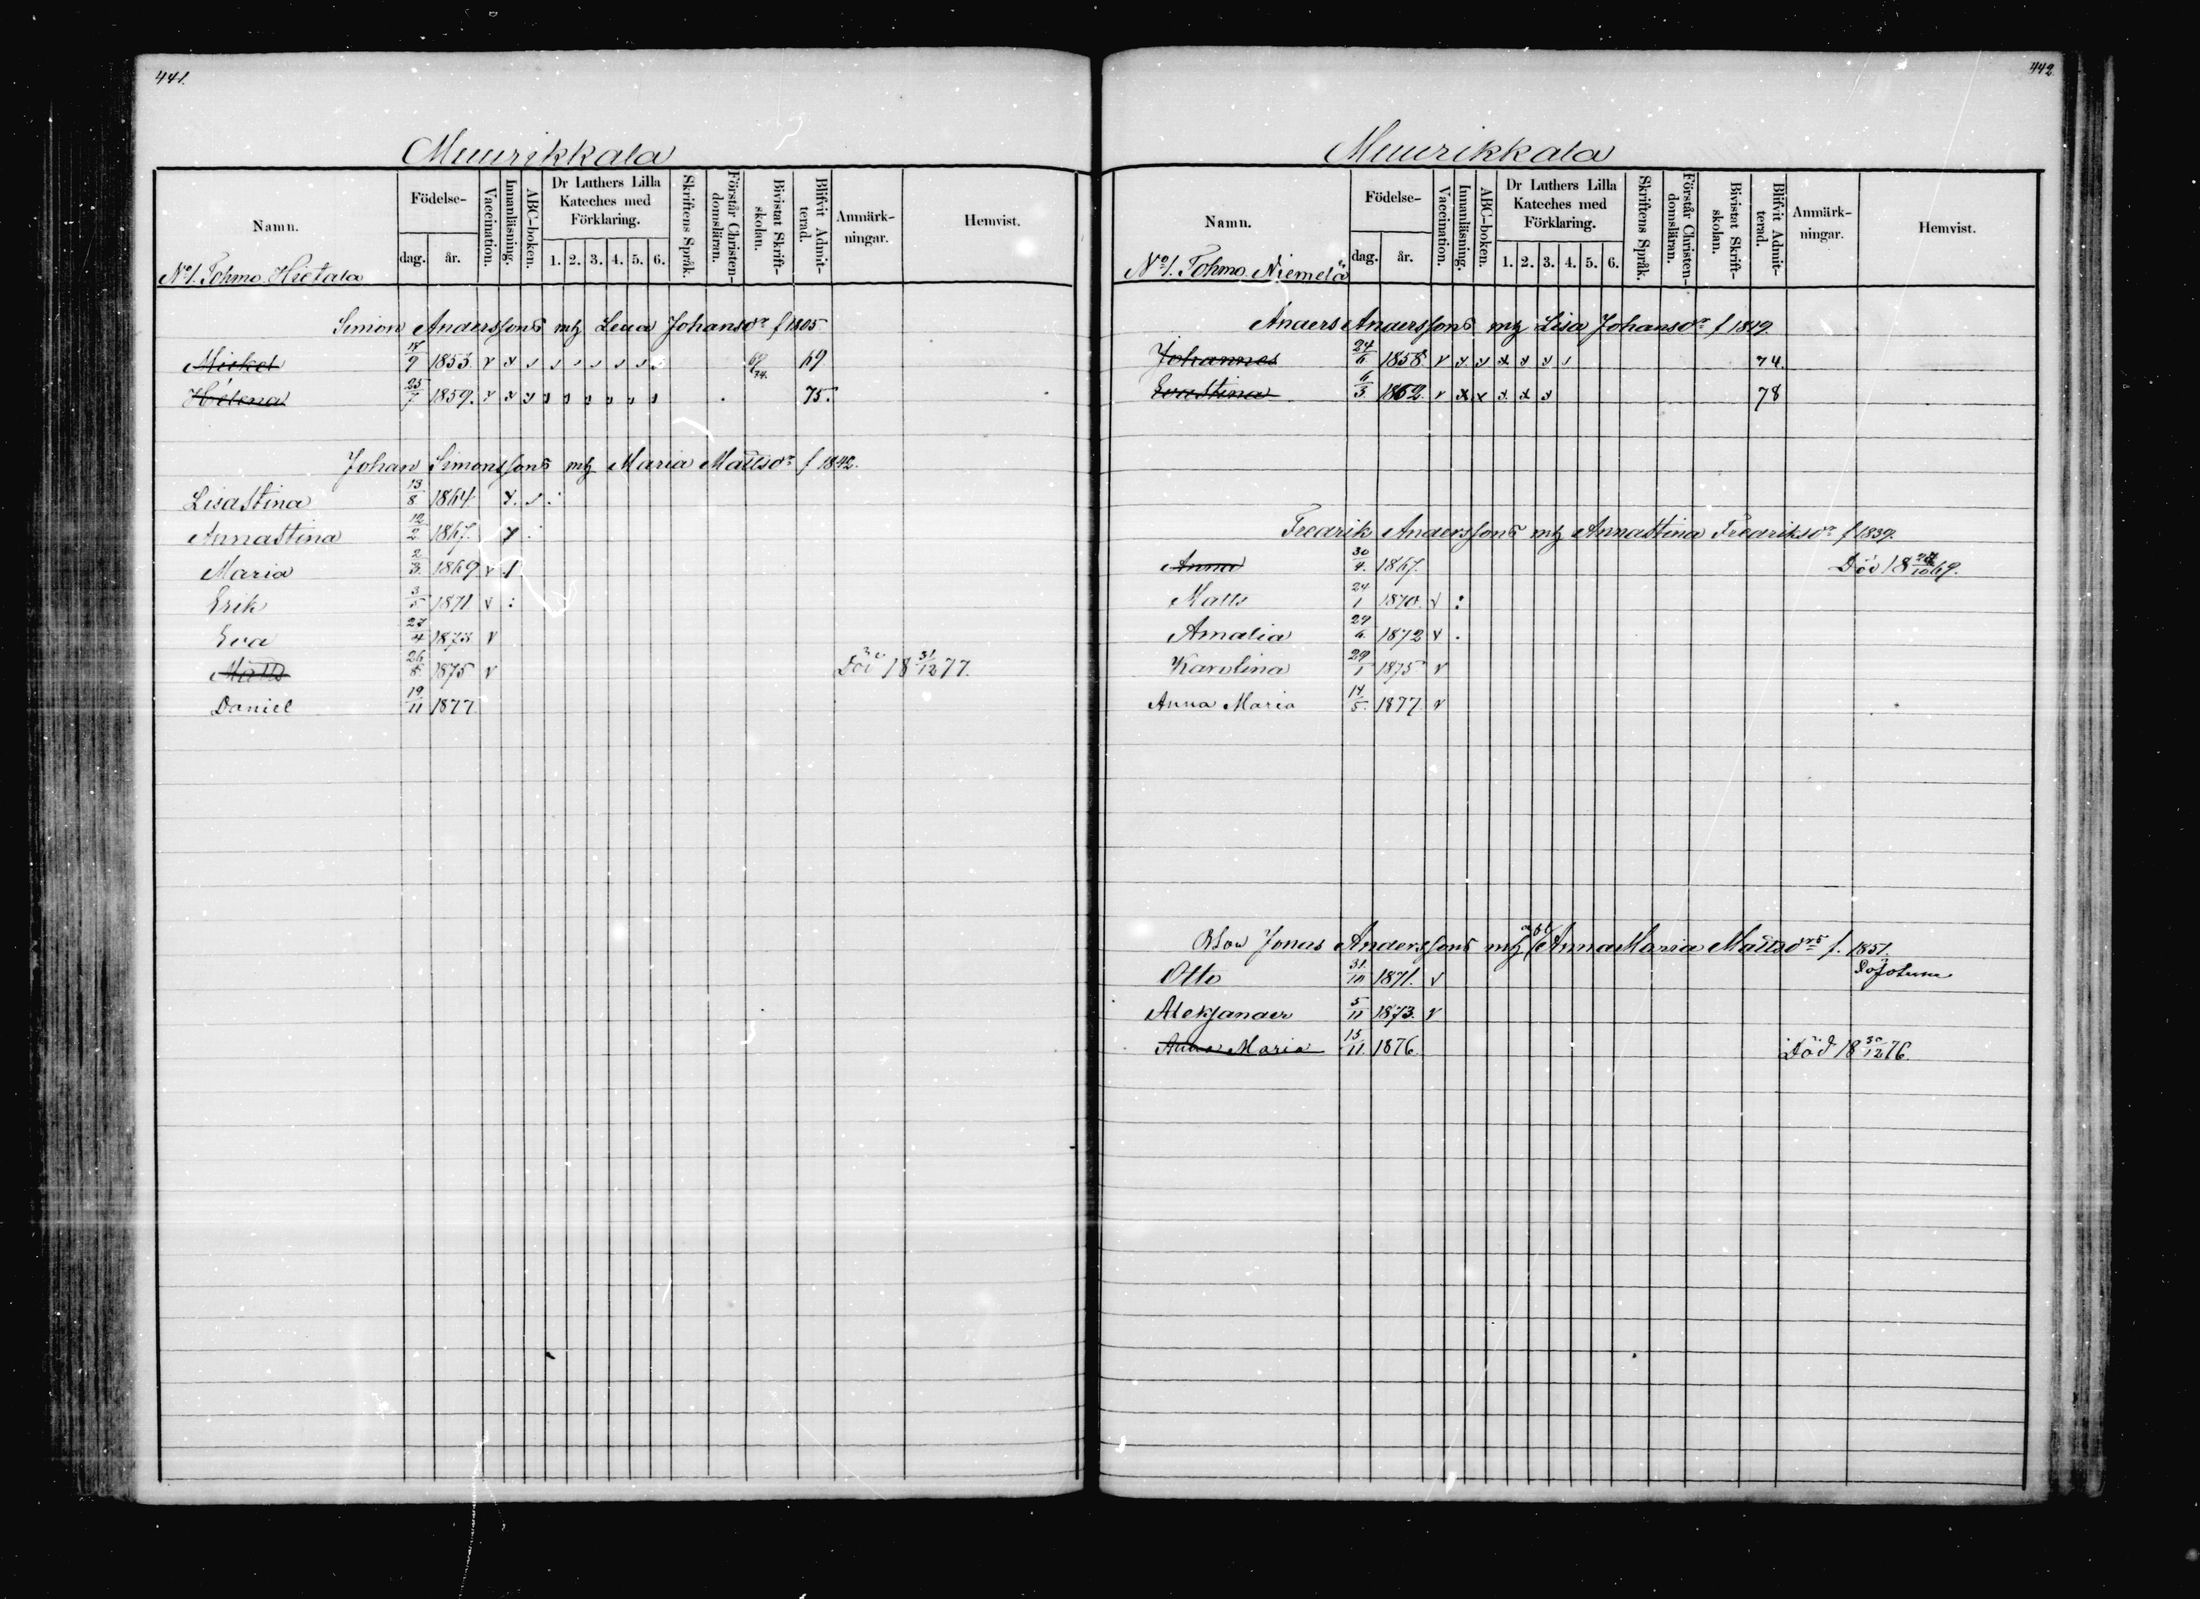 441.
Muurikkala
Namn.
Födelse-
dag.
år.
Vaccination.
Innanläsning.
ABC-boken.
Dr Luthers Lilla Kateches med Förklaring.
1. 2. 3. 4. 5. 6.
Skriftens Språk.
Förstår Christen-domsläran.
Bivistat Skrift-skolan.
Blifvit Admit-terad.
Anmärk-ningar.
Hemvist.
No 1. Tohmo Hietala
Simon Anderssons mh Lena Johansdr f 1805
Mickel 17/9 1853. 69/74. 69
Helena 25/7 1859. 75.
Johan Simonssons mh Maria Mattsdr f 1842.
Lisastina 13/8 1864.
Annastina 12/2 1867.
Maria 2/3 1869
Erik 3/5 1871
Eva 27/4 1873
Matts 26/8 1875 Död 18 31/12 77.
Daniel 19/11 1877
442.
Muurikkala
Namn.
Födelse-
dag.
år.
Vaccination.
Innanläsning.
ABC-boken.
Dr Luthers Lilla Kateches med Förklaring.
1. 2. 3. 4. 5. 6.
Skriftens Språk.
Förstår Christen-domsläran.
Bivistat Skrift-skolan.
Blifvit Admit-terad.
Anmärk-ningar.
Hemvist.
No 1. Tohmo Niemelä
Anders Anderssons mh Lisa Johansdr f 1819.
Johannes 24/6 1858 74.
Evastina 6/3 1862. 78
Fredrik Anderssons mh Annastina Fredriksdr f 1839.
Anna 30/4. 1867. Död 18 /10 69.
Matts 24/1 1870.
Amalia 29/6. 1872
Karolina 29/1 1875
Anna Maria 14/5. 1877
Jonas Anderssons mh AnnaMaria Mattsdrs f. 1851.
Otto 31/10 1871.
Aleksander 5/11 1873.
Anna Maria 15/11 1876. Död 18 30/12 76.